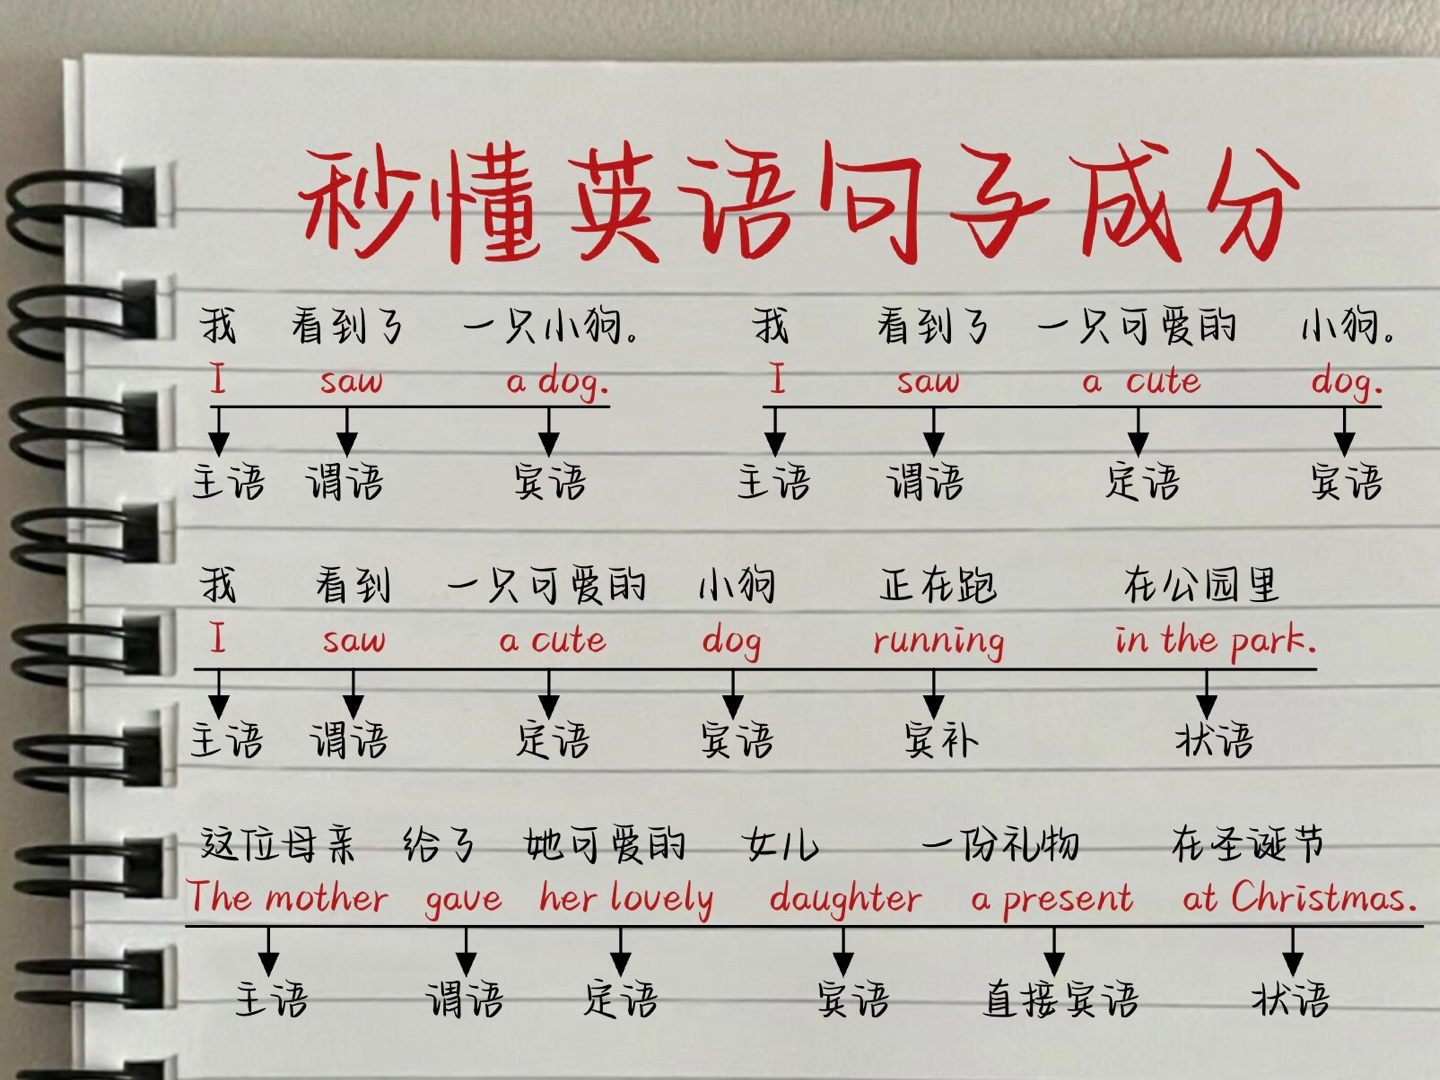 秒懂英语句子成分
我 看到了 一只小狗。
I saw a dog.
主语 谓语 宾语
我 看到了 一只可爱的 小狗。
I saw a cute dog.
主语 谓语 定语 宾语
我 看到 一只可爱的 小狗 正在跑 在公园里
I saw a cute dog running in the park.
主语 谓语 定语 宾语 宾补 状语
这位母亲 给了 她可爱的 女儿 一份礼物 在圣诞节
The mother gave her lovely daughter a present at Christmas.
主语 谓语 定语 宾语 直接宾语 状语